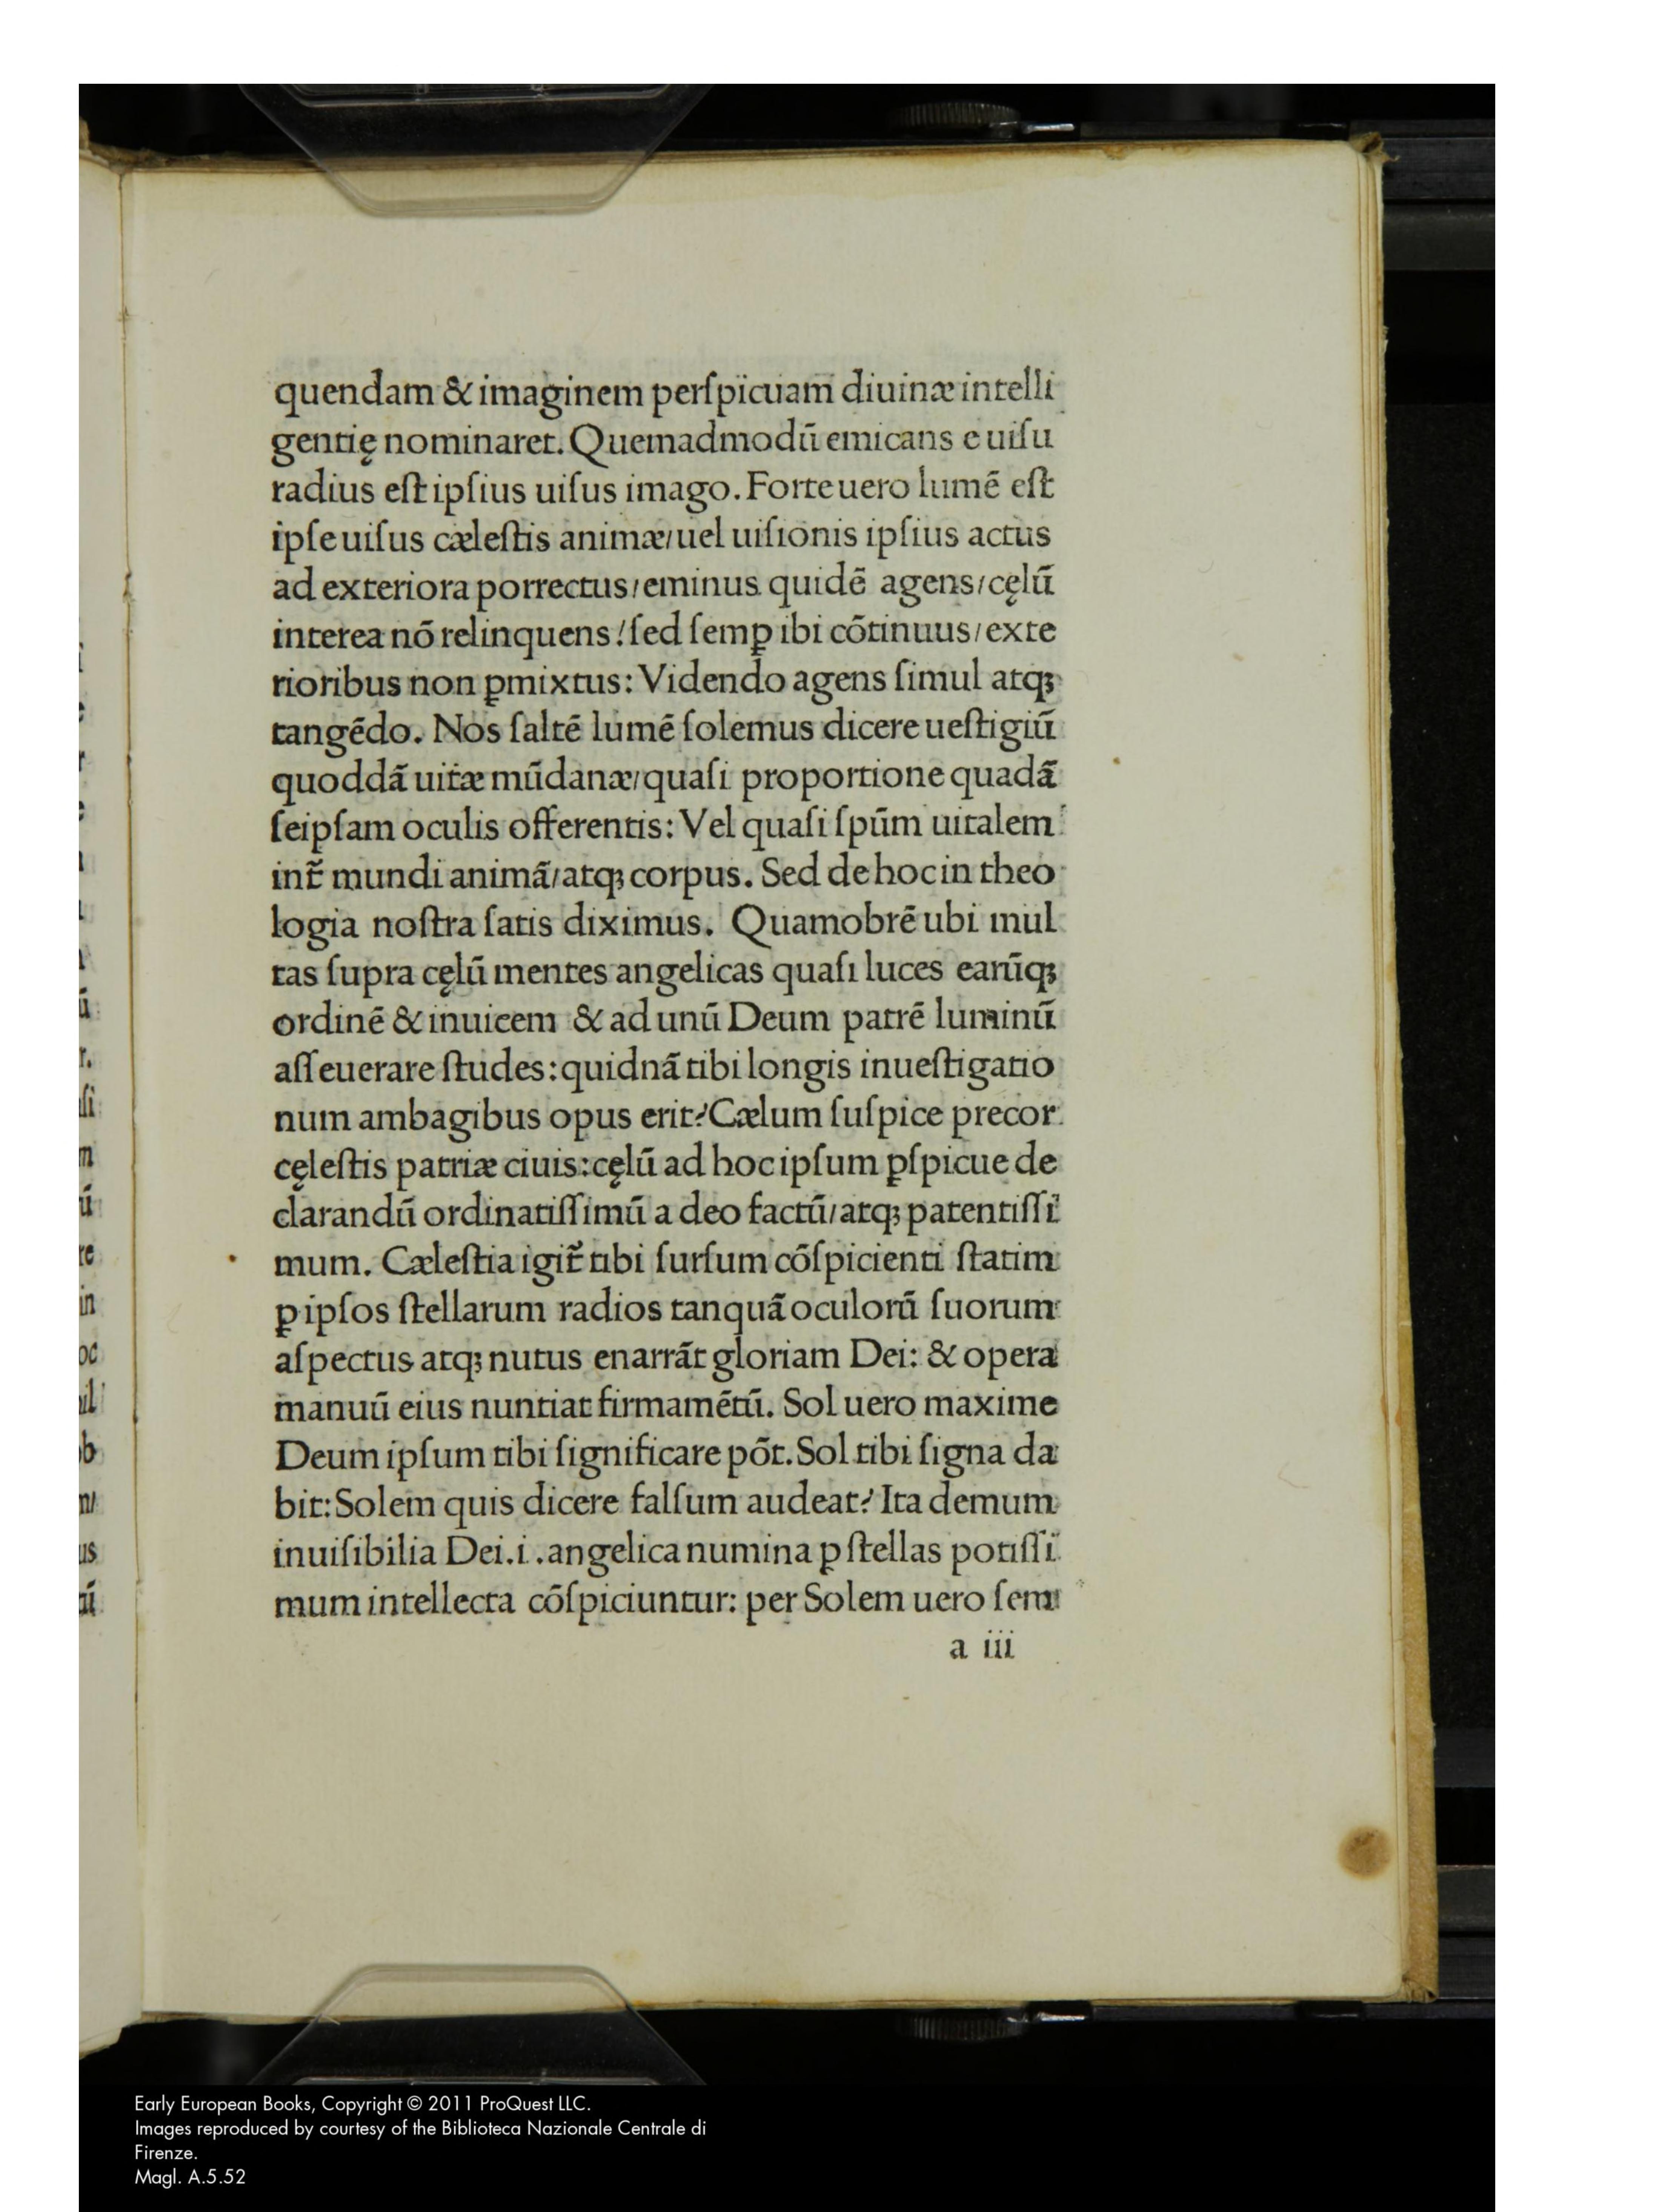 quendam & imaginem perſpicuam diuinæ intelli
gentię nominaret. Quemadmodū emicans e uiſu
radius eſt ipſius uiſus imago. Forte uero lumē eſt
ipſe uiſus cæleſtis animæ/uel uiſionis ipſius actus
ad exteriora porrectus/eminus quidē agens/cęlū
interea nō relinquens:ſed ſemꝑ ibi cōtinuus/exte
rioribus non ꝑmixtus: Videndo agens ſimul atqꝫ
tangēdo. Nos ſaltē lumē ſolemus dicere ueſtigiū
quoddā uitæ mūdanæ/quaſi proportione quadā
ſeipſam oculis offerentis: Vel quaſi ſpūm uitalem
int̄ mundi animā/atqꝫ corpus. Sed de hoc in theo
logia noſtra ſatis diximus. Quamobrē ubi mul
tas ſupra cęlū mentes angelicas quaſi luces earūqꝫ
ordinē & inuicem & ad unū Deum patrē luminū
aſſeuerare ſtudes: quidnā tibi longis inueſtigatio
num ambagibus opus erit? Cælum ſuſpice precor
cęleſtis patriæ ciuis: cęlū ad hoc ipſum ꝑſpicue de
clarandū ordinatiſſimū a deo factū/atqꝫ patentiſſi
mum. Cæleſtia igit̄ tibi ſurſum cōſpicienti ſtatim
ꝑ ipſos ſtellarum radios tanquā oculorū ſuorum
aſpectus atqꝫ nutus enarrāt gloriam Dei: & opera
manuū eius nuntiat firmamētū. Sol uero maxime
Deum ipſum tibi ſignificare pōt. Sol tibi ſigna da
bit: Solem quis dicere falſum audeat? Ita demum
inuiſibilia Dei .i. angelica numina ꝑ ſtellas potiſſi
mum intellecta cōſpiciuntur: per Solem uero ſem
a iii
Early European Books, Copyright © 2011 ProQuest LLC.
Images reproduced by courtesy of the Biblioteca Nazionale Centrale di
Firenze.
Magl. A.5.52